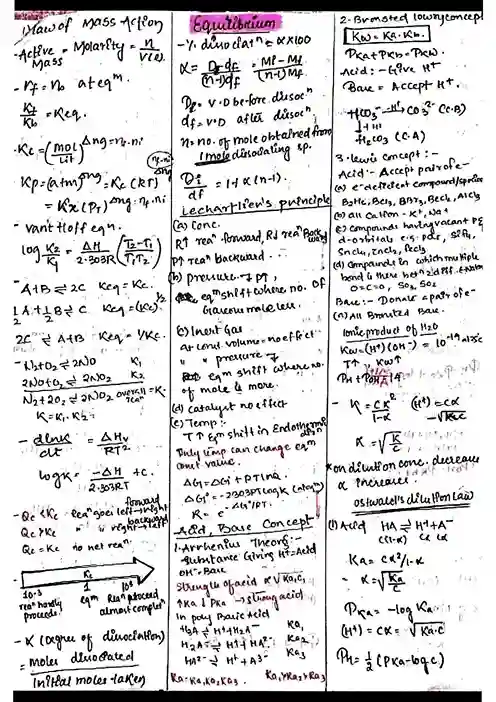 Law of Mass Action
- Active Mass = Molarity = n/V(L)
- rf = rb at eqm.
Kf/Kb = Keq.
- Kc = (mol/Lit)^Δng = nf - ni
Kp = (atm)^Δng = Kc (RT)^nf-ni
= Kx (PT)^Δng = nf - ni
- Vant Hoff eqn.
log K2/K1 = ΔH/2.303R (T2-T1/T1T2)
- A+B ⇌ 2C Keq = Kc.
1/2 A + 1/2 B ⇌ C Keq = (Kc)^1/2
2C ⇌ A+B Keq = 1/Kc.
- N2+O2 ⇌ 2NO K1
2NO+O2 ⇌ 2NO2 K2
N2+2O2 ⇌ 2NO2 overall rean = K.
K = K1.K2
- dlnK/dt = ΔH/RT2
logK = -ΔH/2.303RT + C.
- Qc < Kc rean goes left → right forward
Qc > Kc " " right → left backward
Qc = Kc no net rean.
Kc
10-3 1 103
rean hardly proceeds eqm Rean proceed almost completn
- α (degree of dissociation)
= moles dissociated
Initial moles taken
Equilibrium
- % dissociatn = α×100
α = Di-df/(n-1)df = Mi-Mf/(n-1)Mf
Di = V.D before dissocn
df = V.D after dissocn
n = no. of mole obtained from
1 mole dissociating sp.
Di/df = 1+α(n-1).
Lechartlier's principle
(a) Conc.
R↑ rean forward, R↓ rean Backward
P↑ rean backward.
(b) pressure → P↑,
eqm shift where no. of
Gaseous mole less.
(c) Inert Gas
at const. volume = no effect
" " pressure →
eqm shift where no.
of mole is more.
(d) catalyst no effect
(e) Temp:-
T↑ eqm shift in Endothermic dirn
Only temp can change eqm
const value.
ΔG = ΔG° + RTlnQ.
ΔG° = -2.303RT logK (at eqm)
K = e^-ΔG°/RT.
Acid, Base Concept
1. Arrhenius Theory:-
Substance Giving H+ = Acid
OH- = Base
Strength of acid α √Ka.C,
↑Ka ↓PKa → strong acid
In poly Basic Acid
H3A ⇌ H+ + H2A- Ka1
H2A- ⇌ H+ + HA2- Ka2
HA2- ⇌ H+ + A3- Ka3
Ka = Ka1 Ka2 Ka3 Ka1>Ka2>Ka3
2. Bronsted lowry concept
Kw = Ka.Kb.
PKa + PKb = PKw.
Acid:- Give H+
Base = Accept H+.
HCO3- -H+→ CO3 2- (C.B)
↓+H+
H2CO3 (C.A)
3. Lewis concept:-
Acid - Accept pair of e-
(a) e- deficient compound/species
B2H6, BCl3, BBr3, BeCl2, AlCl3
(b) all Cation - K+, Na+
(c) Compounds having vacant
d-orbitals e.g. PCl5, SiF4,
SnCl4, ZnCl2, FeCl3
(d) Compounds in which multiple
bond is there betn 2 diff. e-
O=C=O, SO2, SO3
Base:- Donate a pair of e-
(i) All Bronsted Base.
Ionic product of H2O
Kw = (H+)(OH-) = 10-14 at 25°C
T↑ Kw↑
PH + POH = 14
- K = Cα2/1-α (H+) = Cα
= √K.C
α = √K/C
* on dilution conc. decrease
α increases.
ostwald's dilution law
(1) Acid HA ⇌ H+ + A-
C(1-α) Cα Cα
Ka = Cα2/1-α
- α = √Ka/C
PKa = -log Ka
(H+) = Cα = √Ka.C
PH = 1/2 (PKa - logC)